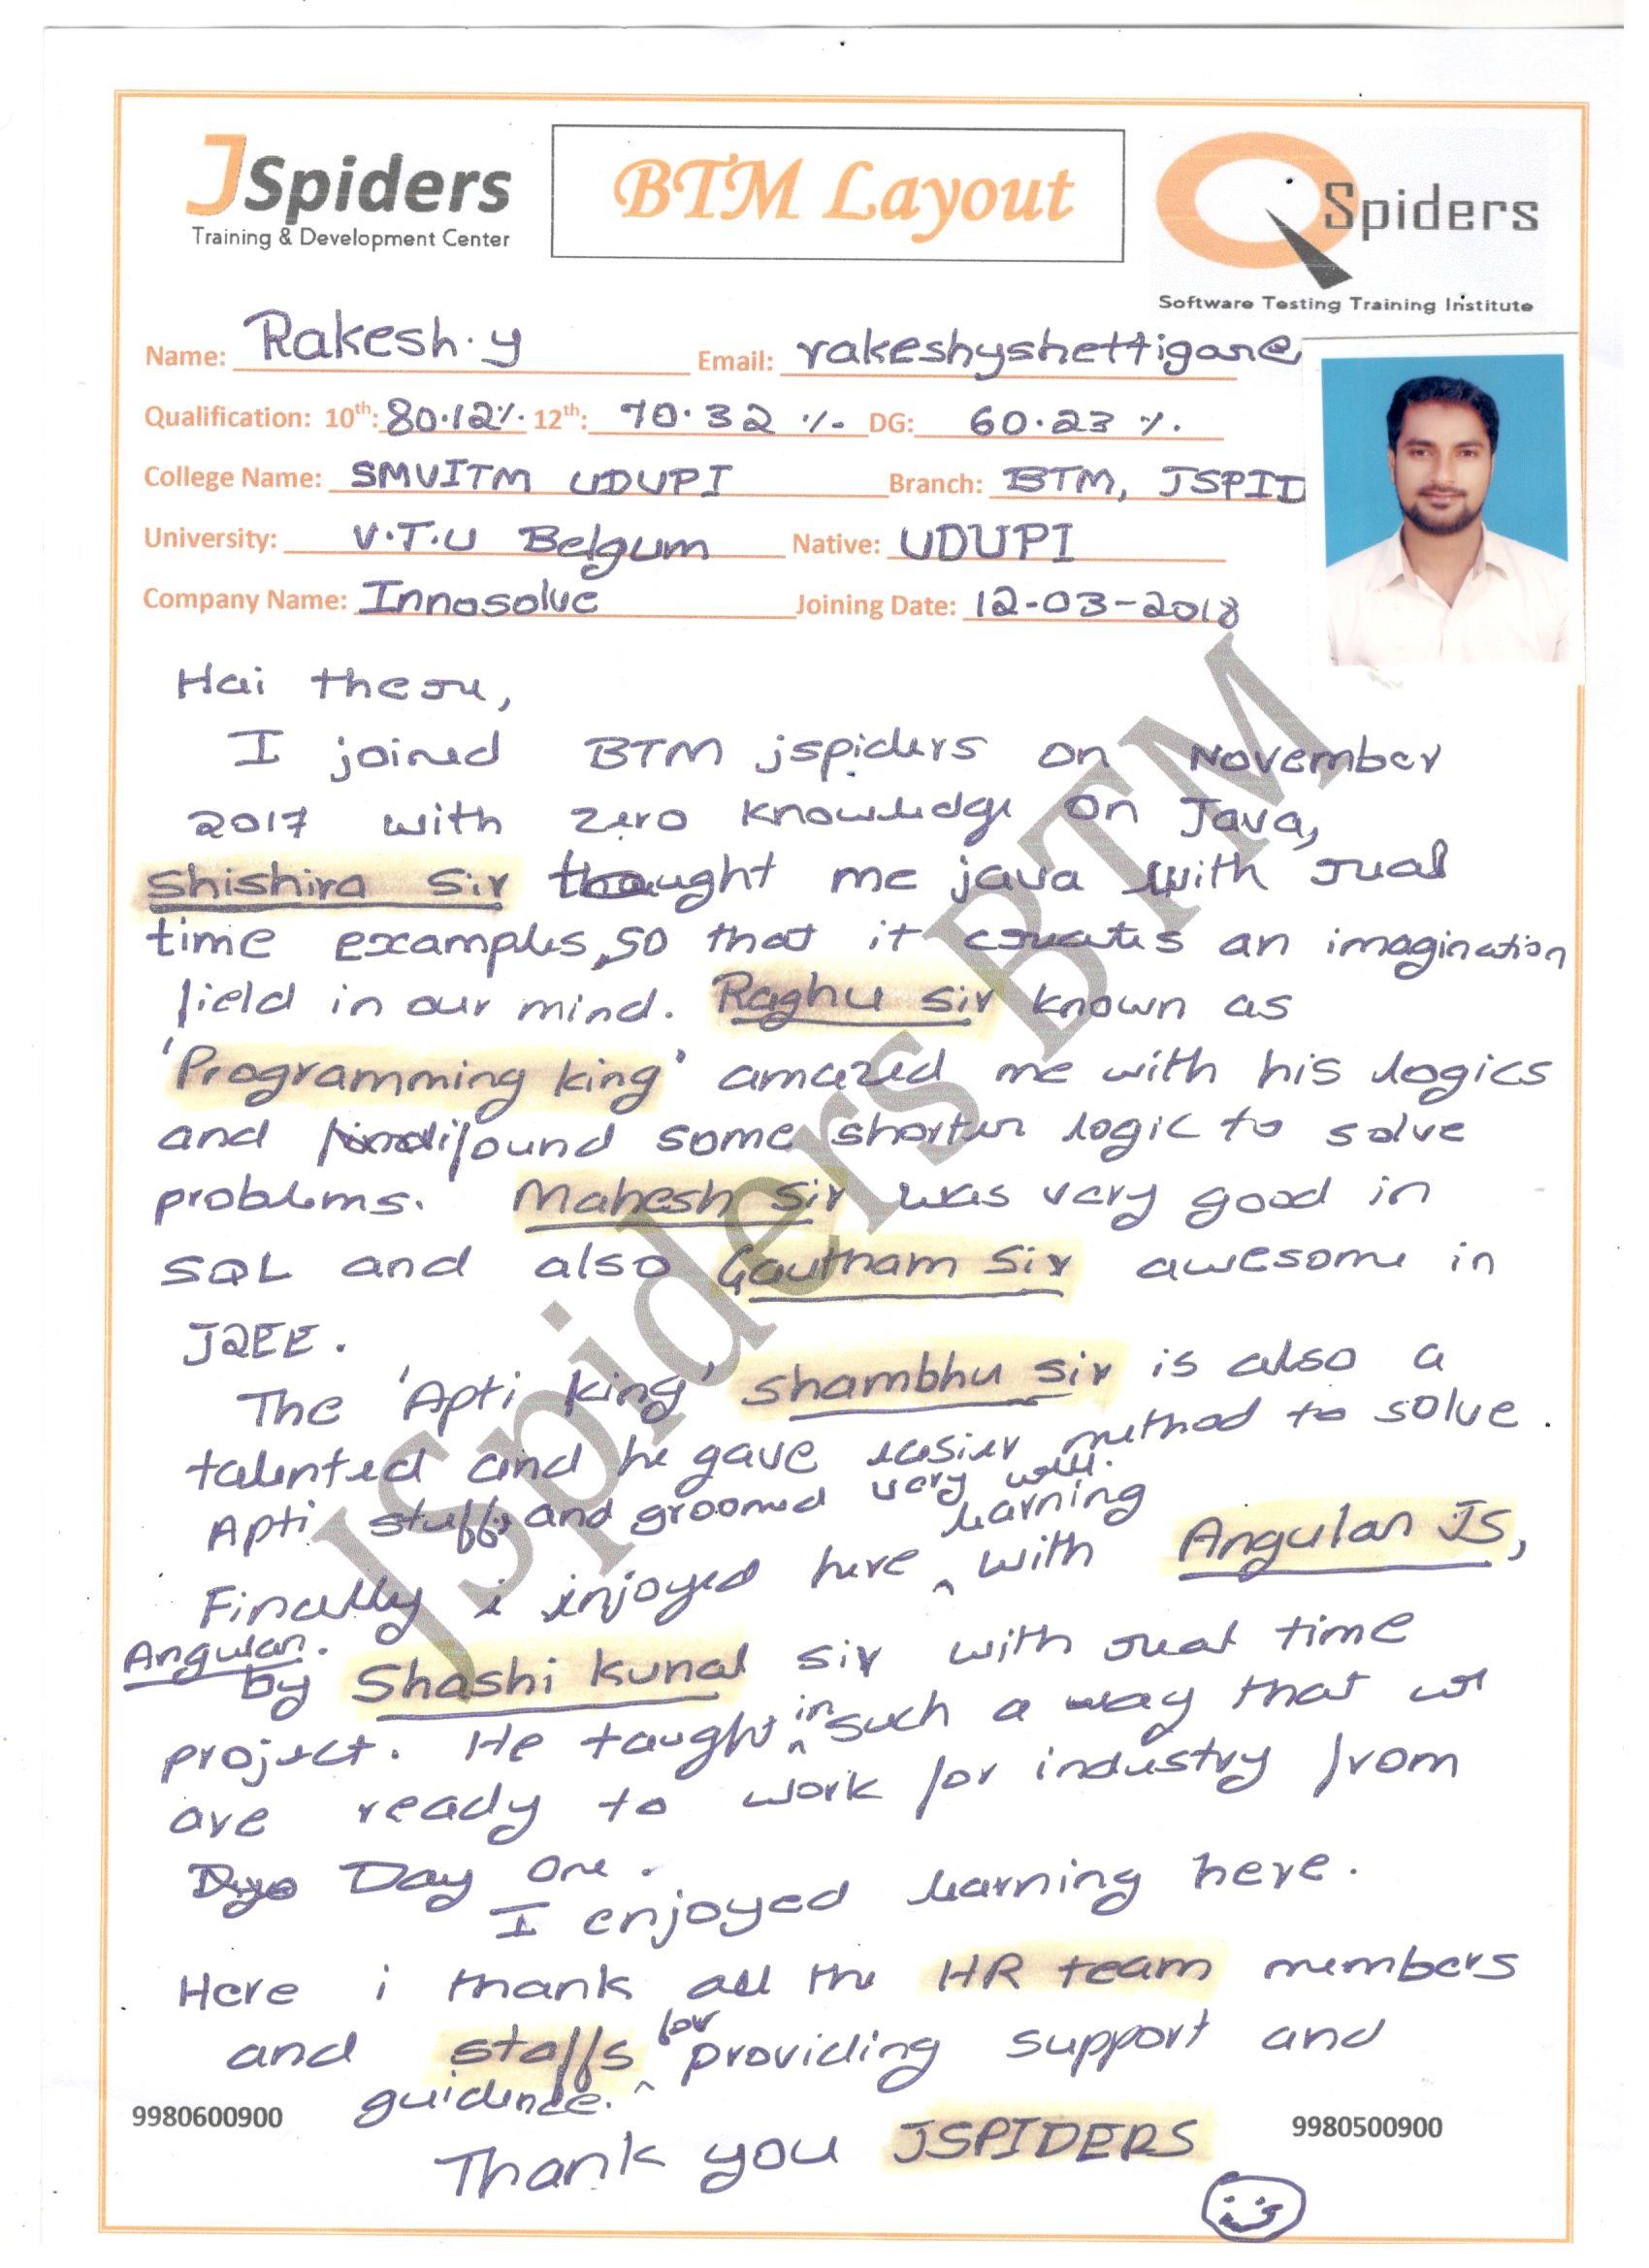 JSpiders
Training & Development Center
BTM Layout
QSpiders
Software Testing Training Institute
Name: Rakesh.y Email: rakeshyshettigar@
Qualification: 10th: 80.12% 12th: 70.32 % DG: 60.23 %.
College Name: SMVITM UDUPI Branch: BTM, JSPID
University: V.T.U Belgum Native: UDUPI
Company Name: Innosolve Joining Date: 12-03-2018
Hai there,
I joined BTM jspiders on November
2017 with zero knowledge on Java,
Shishira Sir thought me java with real
time examples, so that it creates an imagination
field in our mind. Raghu Sir known as
'Programming king' amazed me with his logics
and found some shorter logic to solve
problems. Mahesh Sir was very good in
SQL and also Gautham Sir awesome in
J2EE.
The 'Apti king' Shambhu Sir is also a
talented and he gave easier method to solve.
Apti stuffs and groomed very well.
Finally i injoyed here learning with Angular JS,
Angular.
by Shashi kunal sir with real time
project. He taught in such a way that we
are ready to work for industry from
Day One.
I enjoyed learning here.
Here i thank all the HR team members
and staffs for providing support and
guidence.
9980600900 9980500900
Thank you JSPIDERS
JSpiders BTM